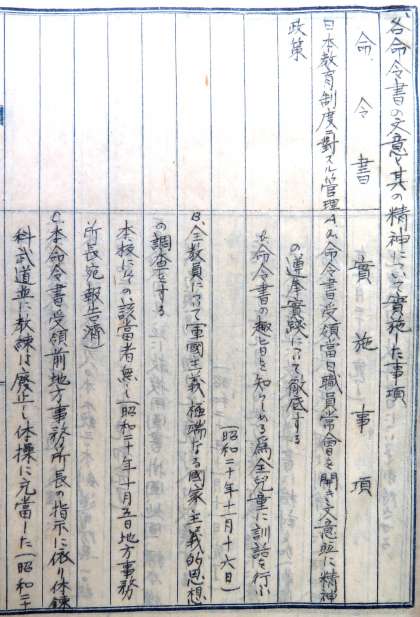 各命令書の文意と其の精神について實施した事項
命令書 實施事項
日本教育制度ニ對スル管理 A a.命令書受領當日職員常會を開き文意並に精神
政策
の遵奉實踐について徹底する
b.命令書の趣旨を知らしめる為全兒童に訓話を行ふ
(昭和二十年十一月十六日)
B.全教員について軍國主義極端なる國家主義的思想
の調査をする
本校にての該當者無し(昭和二十年十月五日地方事務
所長宛報告濟)
C.本命令書受領前地方事務所長の指示に依り体錬
科武道並に教練は廢止し体操に充當した(昭和二十